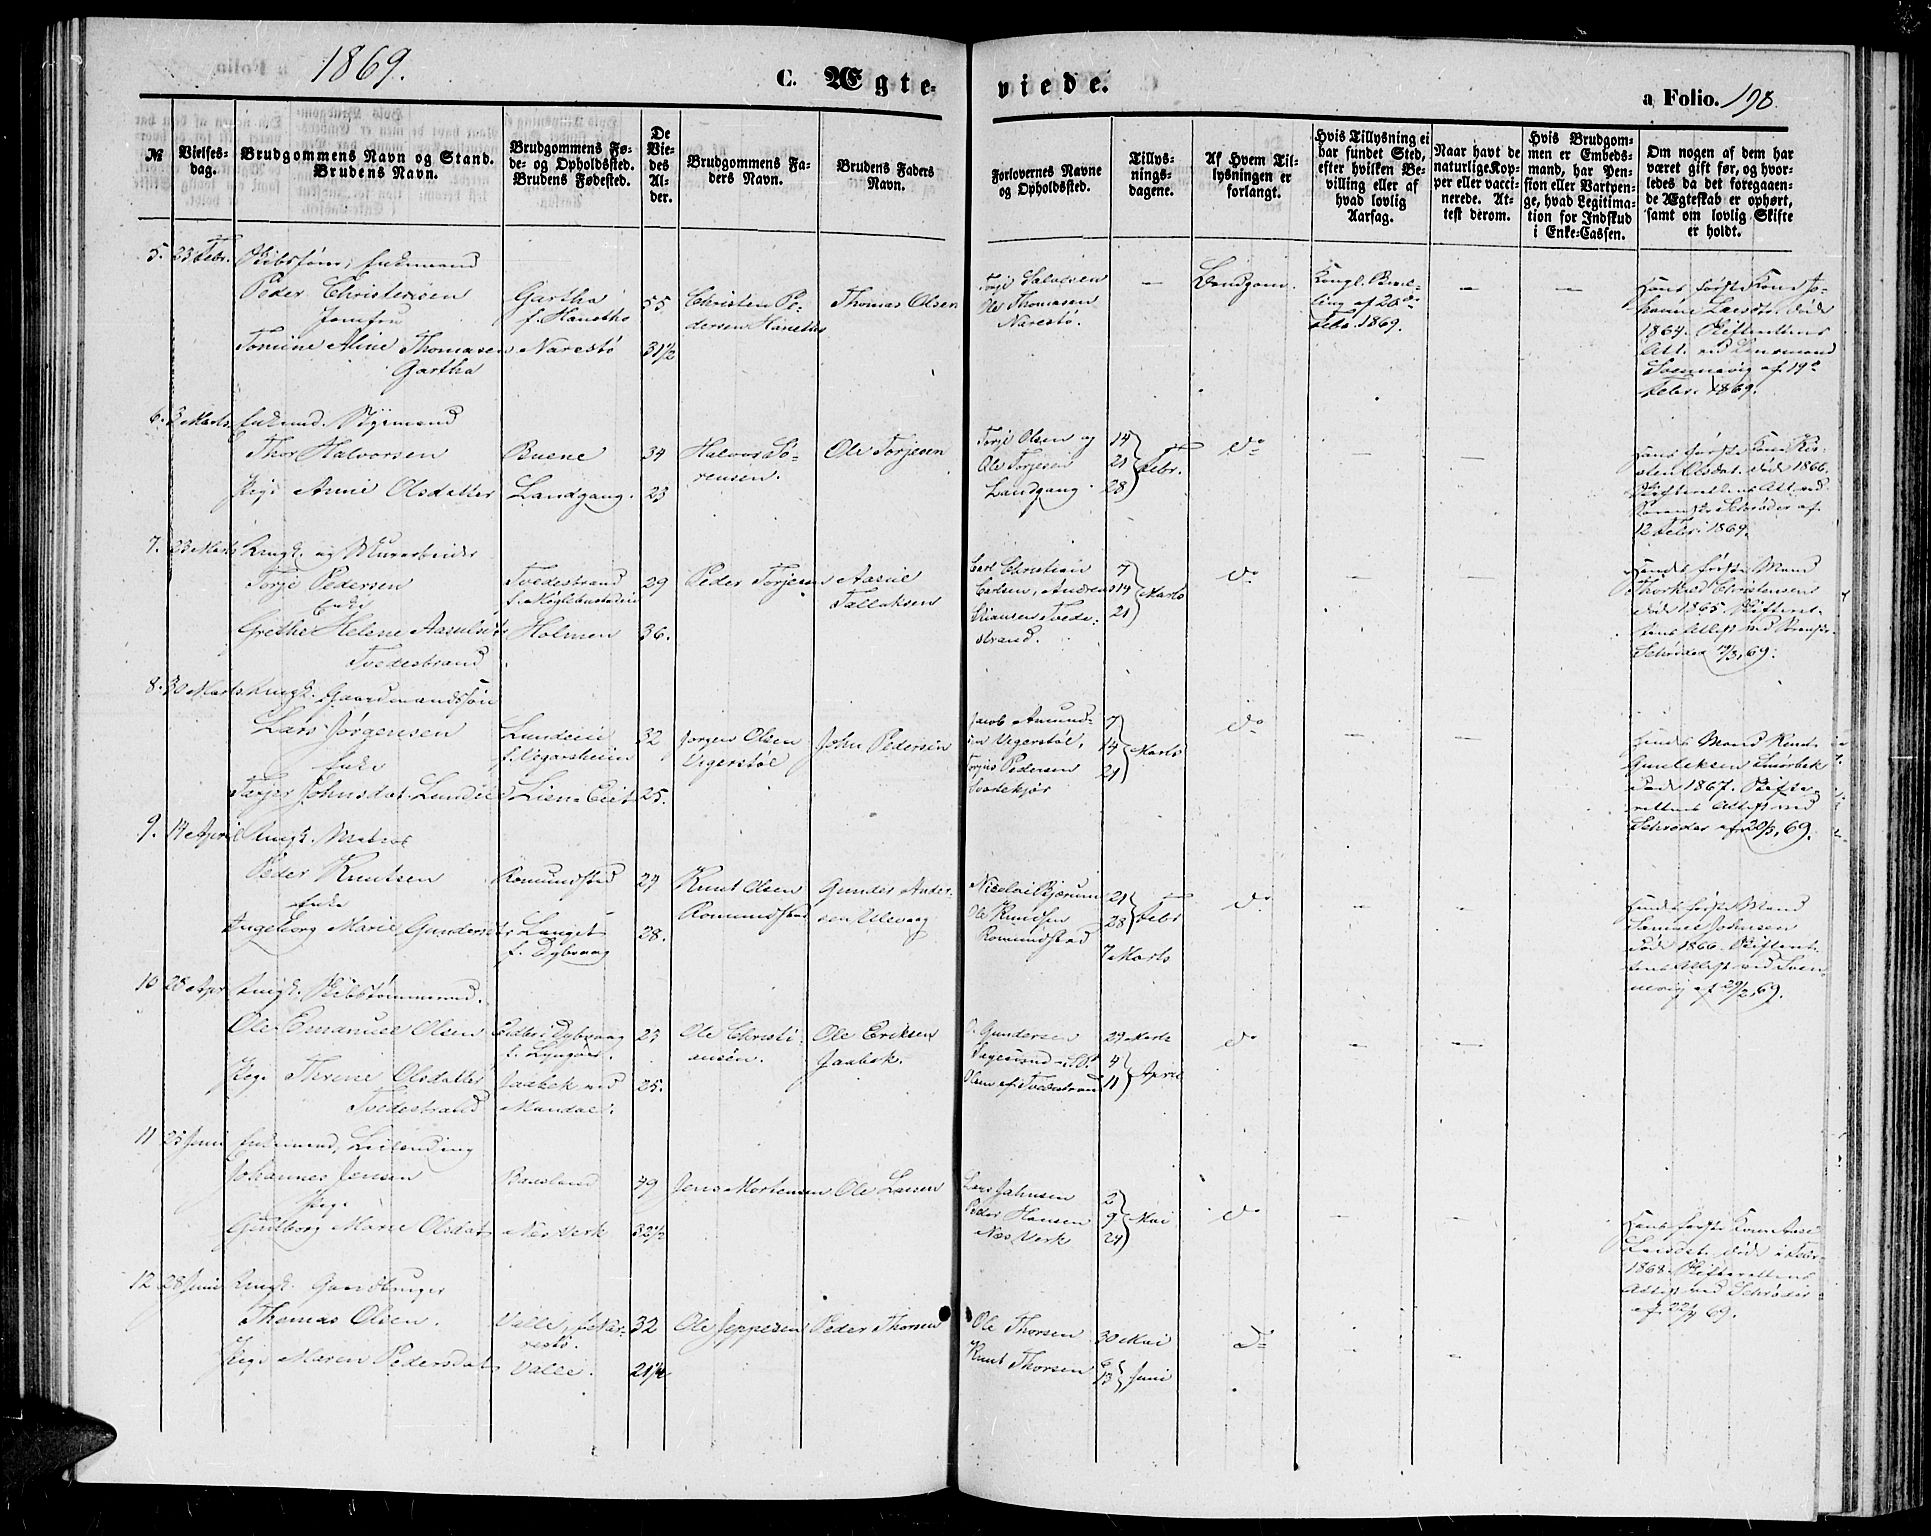 1869.
C. Ægte-
viede.
a Folio. 198
№
Vielses-
dag.
Brudgommens Navn og Stand.
Brudens Navn.
Brudgommens Fø-
de- og Opholdssted.
Brudens Fødested.
De
Vie-
des
Al-
der.
Brudgommens Fa-
ders Navn.
Brudens Faders
Navn.
Forlovernes Navne
og Opholdssted.
Tillys-
nings-
dagene.
Af Hvem Til-
lysningen er
forlangt.
Hvis Tillysning ei
har fundet Sted,
efter hvilken Be-
villing eller af
hvad lovlig
Aarsag.
Naar havt de
naturlige Kop-
per eller vacci-
nerede. At-
test derom.
Hvis Brudgom-
men er Embeds-
mand, har Pen-
sion eller Vartpen-
ge, hvad Legitima-
tion for Indskud
i Enke-Cassen.
Om nogen af dem har
været gift før, og hvor-
ledes da det foregaaen-
de Ægteskab er ophørt,
samt om lovlig Skifte
er holdt.
5. 23 Febr. Skibsfører, Enkemand
Peder Christensen
Jomfru
Tomine Aline Thomasen
Gartha
Gartha
f. Hanetho
Narestø
55
31½
Christen Pe-
dersen Hanetho
Thomas Olsen
Torje Salvesen
Ole Thomasen
Narestø.
—
Brudgom.
Kongl. Bevil-
ling af 20de
Febr. 1869.
—
—
Hans første Kone Jo-
hanne Larsdtr. døde
1864. Skifterettens
Att. ved Lensmand
Svennevig af 19de
Febr. 1869.
6. 3 Marts Enkemd. Bygmand
Thor Halvorsen
Pige Anne Olsdatter
Buene
Landgang.
34
23
Halvor Sø-
rensen.
Ole Torjesen
Torje Olsen og
Ole Torjesen
Landgang.
14
21
28
Febr.
do
—
—
Hans første Kone Kir-
sten Olsdat. død 1866
Skifterettens Att. ved
Schrøder af
12 Febr. 1869.
7. 23 Marts Ungk. og Murarbeider
Torje Pedersen
Enke
Grethe Helene Aasulsdtr
Tvedestrand
Tvedestrand
Holmen
29
36.
Peder Torjesen
Aasul
Tallaksen
Carl Christian
Carlsen, Andreas
Stiansen Tvede-
strand.
7
14
21
Marts
do
—
—
Hendes første Mand
Thorkild Christensen
død 1865. Skifteret-
tens Attest ved
Schrøder 19/3, 69.
8. 30 Marts Ungk. Gaardmandssøn
Lars Jørgensen
Enke
Torjer Johnsdat. Lundeie
Lundeie
f. i Vegarsheien
Lien Eiet
32
25.
Jørgen Olsen
Vegerstøl
John Pedersen
Jacob Amund-
sen Vegerstøl,
Torjus Pedersen
7
14
21
Marts
do
—
—
Hendes Mand Knut
Gundersen Smørbek
død 1867. Skifte-
rettens Attest ved
Schrøder af 20/3, 69.
9. 14 April Ungk. Matros
Peder Knutsen
Enke
Ingeborg Marie Gundersdtr
Romundstad
Langet
f. Dybvaag
24
28.
Knut Olsen
Romundstad
Gunder Ander-
sen Ulevaag
Nicolai Bjærum
Ole Knudsen
Romundstad
21
28
Febr
7 Marts
do
—
—
Hendes første Mand
Samuel Johnsen
død 1866. Skifteret-
tens Attest ved Sven-
nevig af 29/2, 69.
10 28 Apr Ungk. Skibstømmermd.
Ole Emanuel Olsen
Pige Therene Olsdatter
Tvedestrand
Eidbo i Dybvaag
f. Lyngør.
Jaabek ved
Mandal.
23
25.
Ole Christi-
ansøn.
Ole Eriksen
Jaabek.
O. Gundersen
Sagesund
Olsen af Tvedestrand
29 Marts
4
11
April
do
—
—
11 25 Juni Enkemand, Leilending
Johannes Jensen
Pige
Gudborg Marie Olsdat
Baasland
Nes Verk
49
32½
Jens Mortensen
Ole Larsen
Lars Jahnsen
Peder Hansen
Næs Verk
2
9
24
Mai
do
—
—
Hans første Kone Anne
Larsdat. døde i Febr.
1868. Skifterettens
Attest ved Schrøder
af 22/4 69.
12 28 Juni Ungk. Gaardbruger
Thomas Olsen.
Pige Maren Pedersdat
Valle, f. Nar-
restø.
Valle.
32
21¼
Ole Jeppesen
Peder Thorsen
Ole Thorsen
Knut Thorsen
30 Mai
6
13
Juni
do
—
—